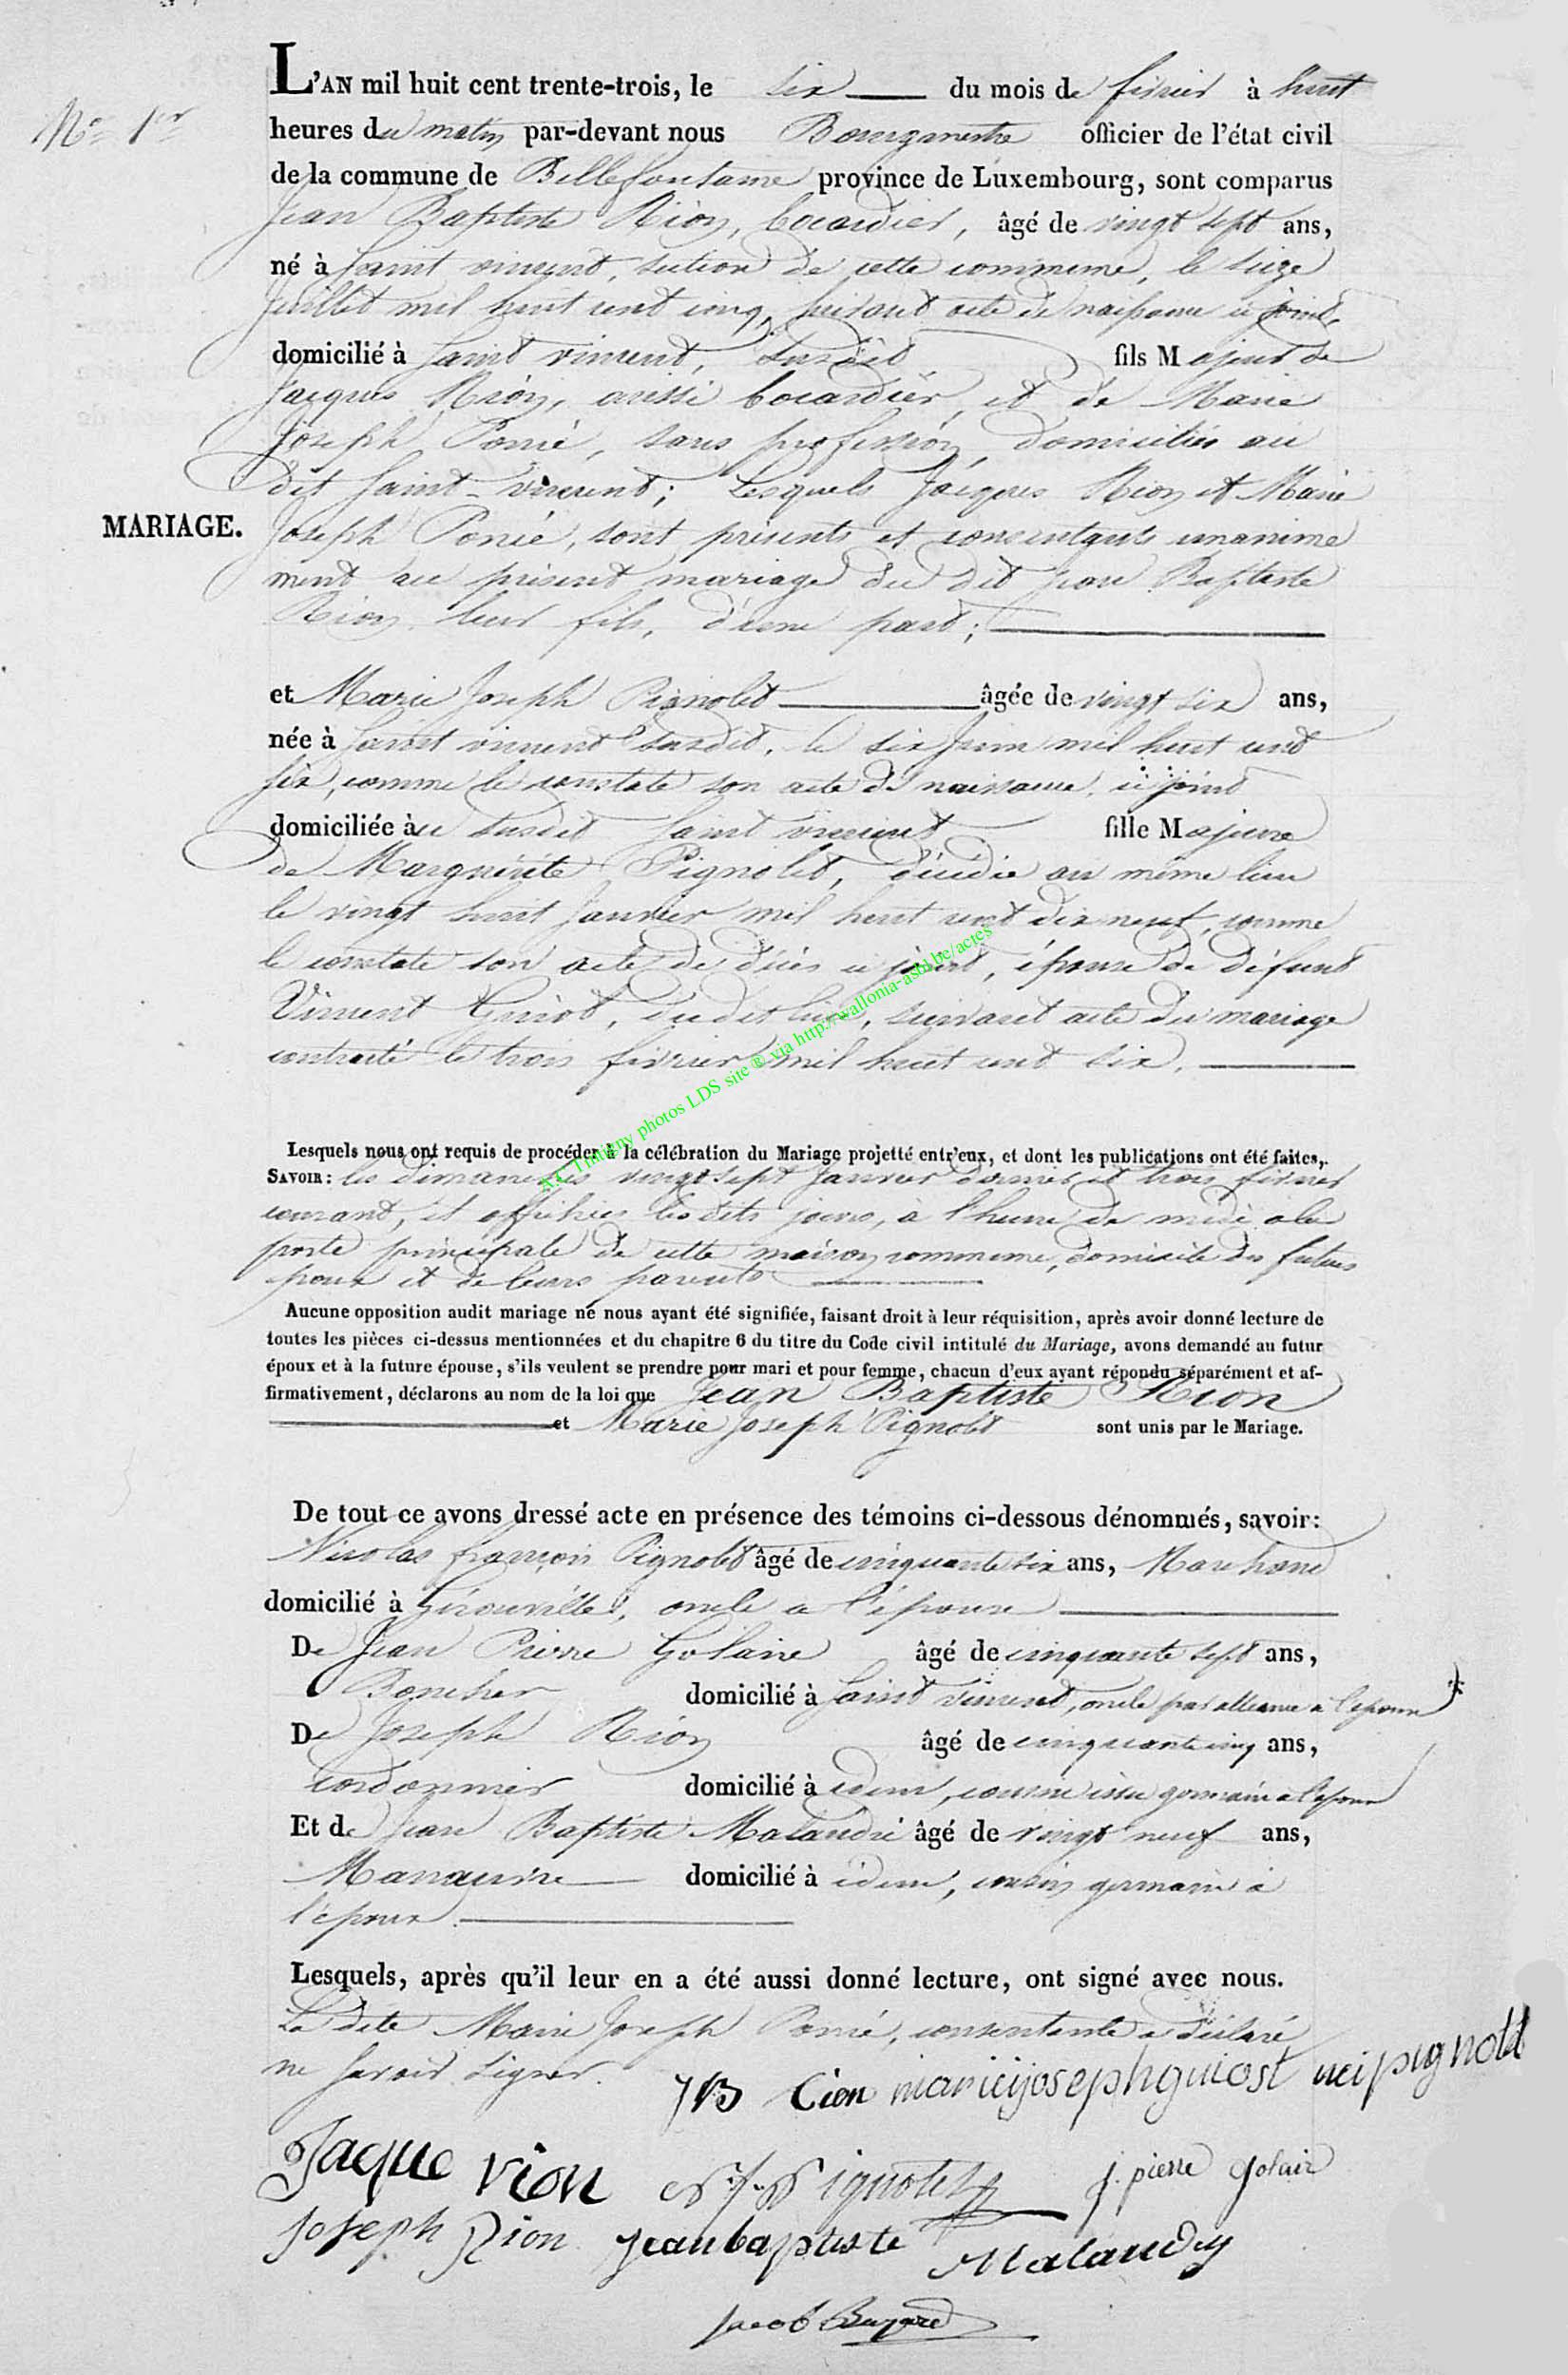 L'AN mil huit cent trente-trois, le six du mois de février à huit
N° 1er
heures du matin par-devant nous Bourgmestre officier de l'état civil
de la commune de Bellefontaine province de Luxembourg, sont comparus
Jean Baptiste Rion, bocardier, âgé de vingt sept ans,
né à Saint vincent, section de cette commune, le seize
Juillet mil huit cent cinq, suivant acte de naissance ci joint,
domicilié à Saint vincent, susdit fils Majeur de
Jacques Rion, aussi bocardier, et de Marie
Joseph Poncé, sans profession, domiciliés au
dit Saint-vincent; Lesquels Jacques Rion et Marie
MARIAGE.
Joseph Poncé, sont présents et consentants unanime
ment au présent mariage du dit Jean Baptiste
Rion leur fils, d'une part;
et Marie Joseph Pignolet âgée de vingt six ans,
née à Saint vincent susdit, le six Juin mil huit cent
six, comme le constate son acte de naissance, ci joint
domiciliée au susdit Saint vincent fille Majeure
de Marguérite Pignolet, décédée au même lieu
le vingt huit Janvier mil huit cent dix neuf, comme
le constate son acte de décès ci joint, épouse de défunt
Vincent Guiot, dudit lieu, suivant acte de mariage
contracté le trois février mil huit cent six.
A.C. Tintigny photos LDS site ® via http://wallonia-asbl.be/actes
Lesquels nous ont requis de procéder à la célébration du Mariage projetté entr'eux, et dont les publications ont été faites,
SAVOIR: les dimanches vingt sept Janvier dernier et trois février
courant, et affichées les dits jours, à l'heure de midi a la
porte principale de cette maison commune, domicile des futurs
époux et de leurs parents
Aucune opposition audit mariage ne nous ayant été signifiée, faisant droit à leur réquisition, après avoir donné lecture de
toutes les pièces ci-dessus mentionnées et du chapitre 6 du titre du Code civil intitulé du Mariage, avons demandé au futur
époux et à la future épouse, s'ils veulent se prendre pour mari et pour femme, chacun d'eux ayant répondu séparément et af-
firmativement, déclarons au nom de la loi que Jean Baptiste Rion
et Marie Joseph Pignolet sont unis par le Mariage.
De tout ce avons dressé acte en présence des témoins ci-dessous dénommés, savoir:
Nicolas françois Pignolet âgé de cinquante six ans, Marchand
domicilié à Gérouville, oncle a l'épouse
De Jean Pierre Golaire âgé de cinquante sept ans,
domicilié à Saint vincent, oncle par alliance a l'épouse
De Joseph Rion âgé de cinquante cinq ans,
cordonnier domicilié à idem, cousin issu germain a l'époux
Et de Jean Baptiste Malandré âgé de vingt neuf ans,
Manœuvre domicilié à idem, cousin germain à
l'époux.
Lesquels, après qu'il leur en a été aussi donné lecture, ont signé avec nous.
La dite Marie Joseph Poncé, consentante a déclaré
ne savoir signer.
JB Rion marie josephguiost nei pignolet
Jaque rion N. f. Pignolet j. pierre golair
Joseph Rion Jean baptiste Malaudry